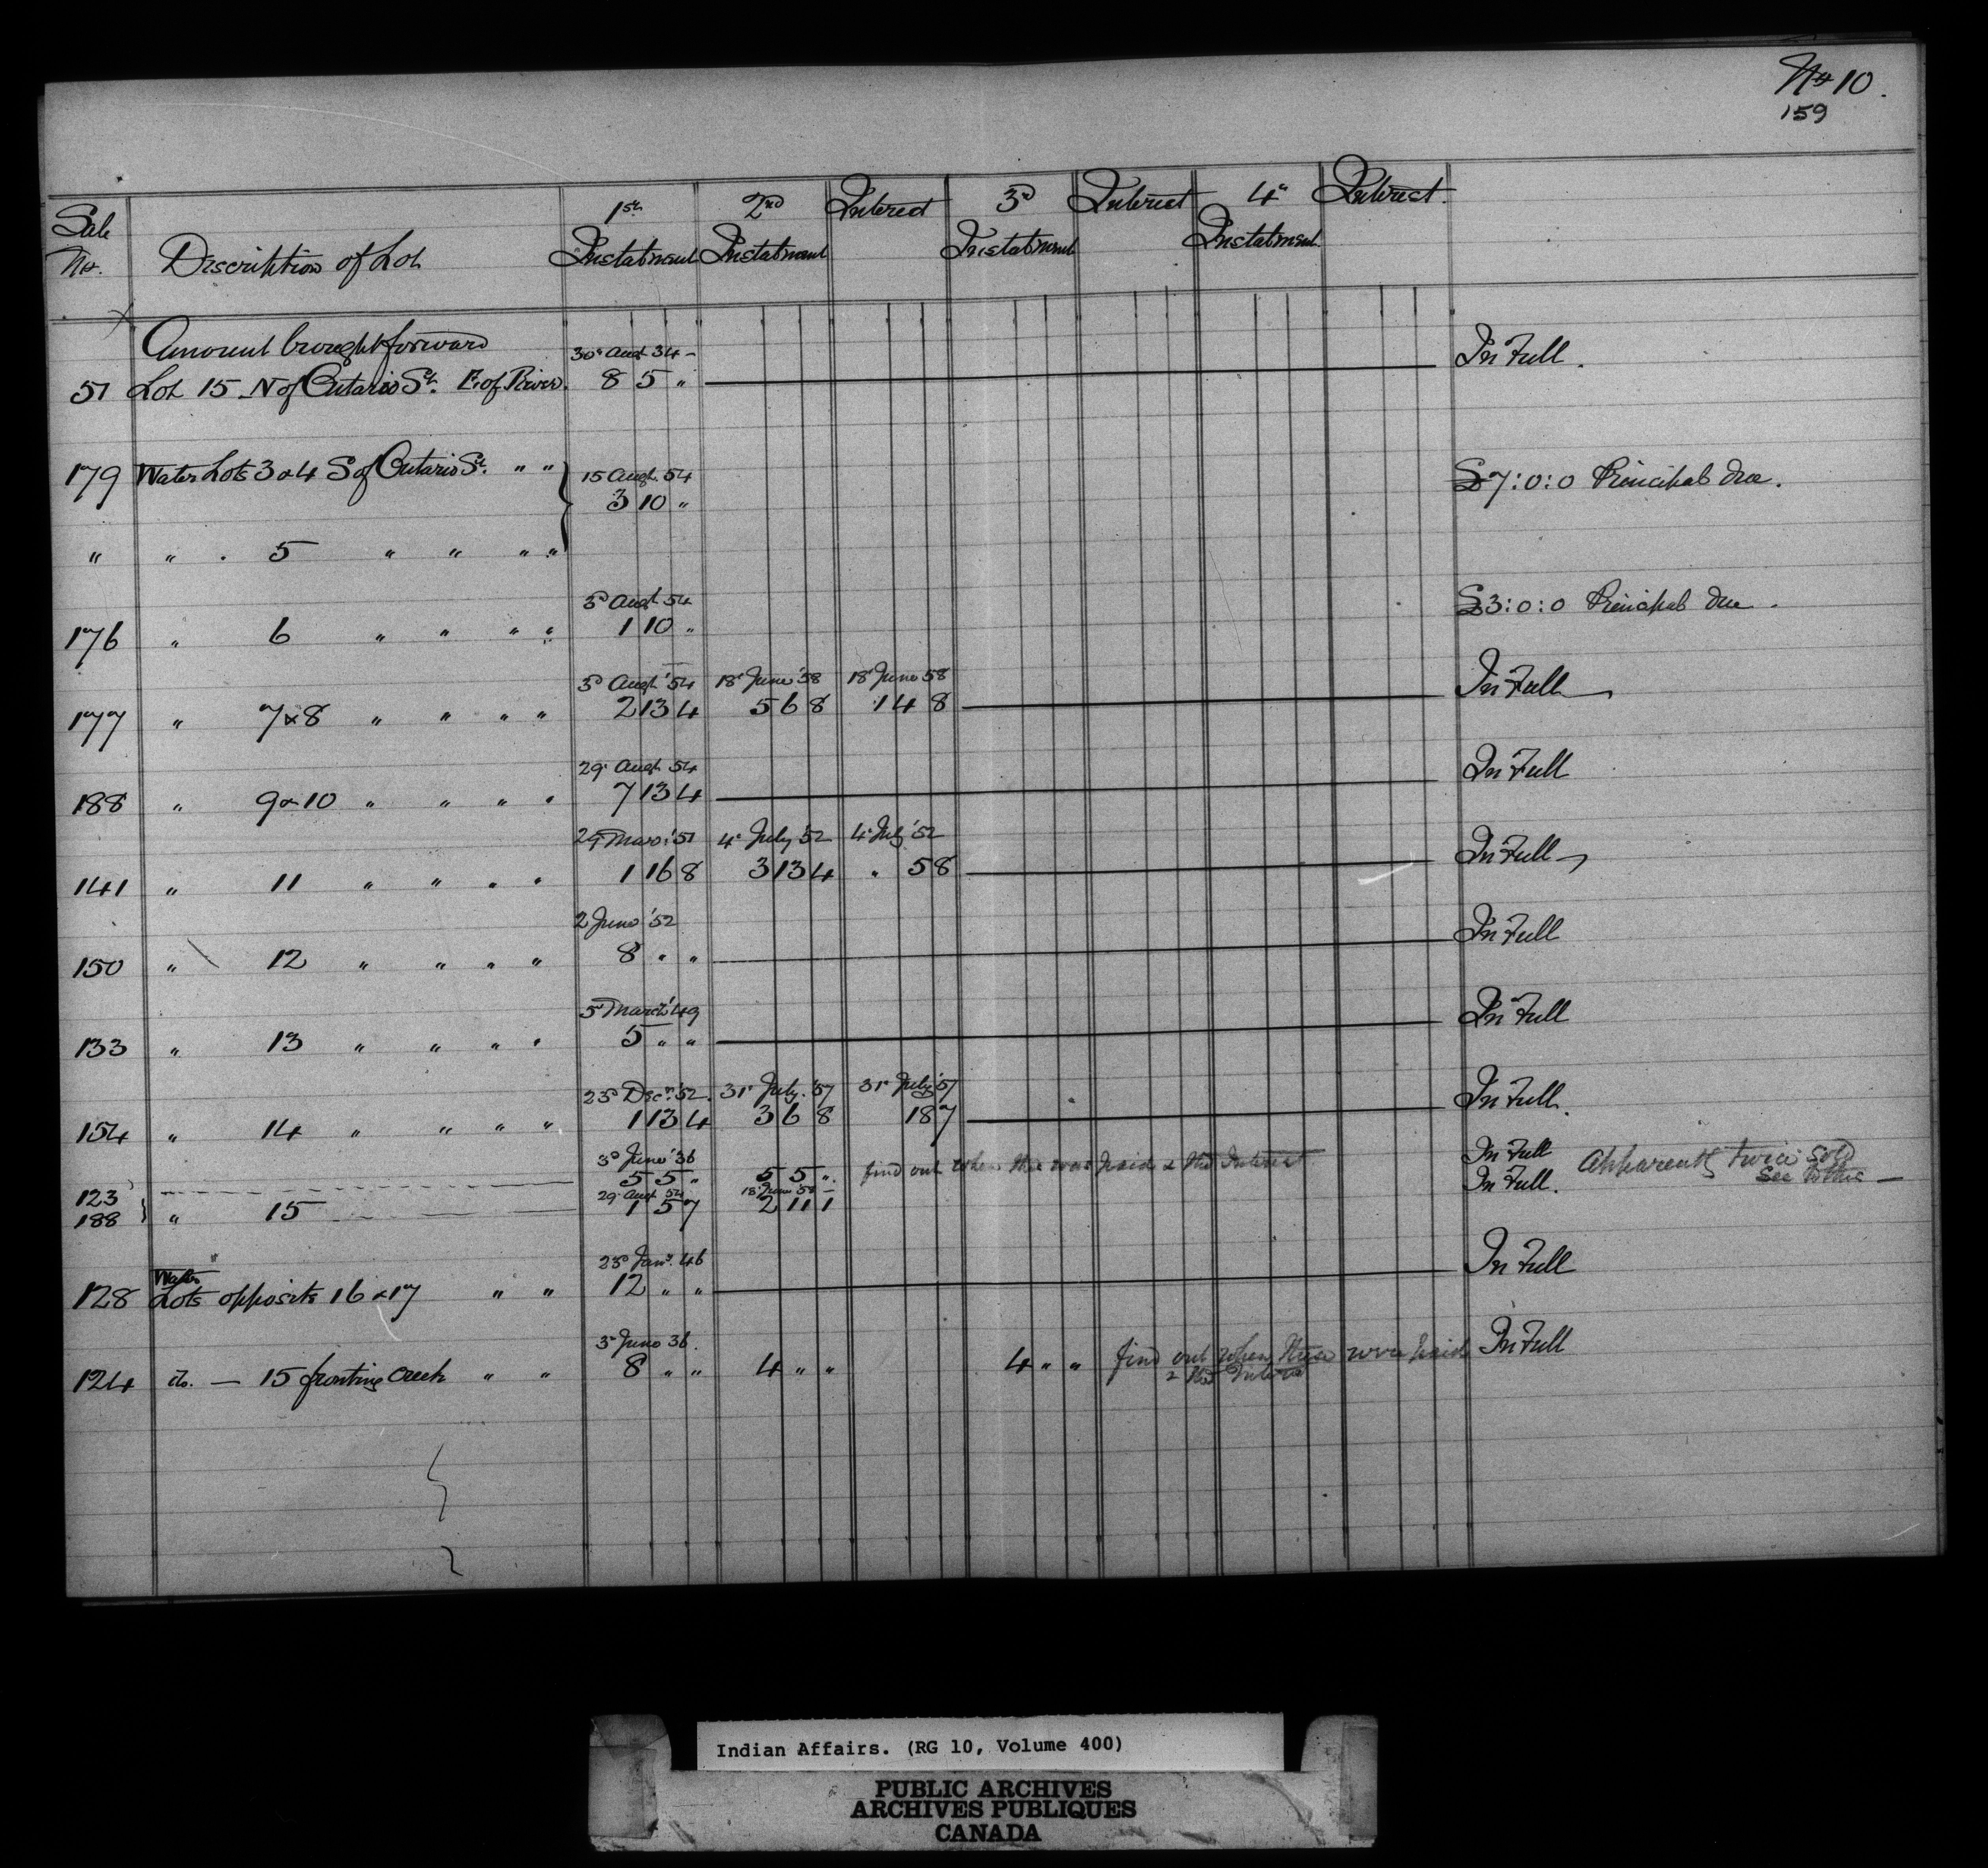 No 10.
159
Sale No. Description of Lot 1st Instalment 2nd Instalment Interest 3d Instalment Interest 4th Instalment Interest
Amount brought forward 30 Augt 34 — In Full.
51 Lot 15 N of Ontario St. E. of River. 8 5 "
179 Water Lots 3 & 4 S of Ontario St. " " 15 Augt. 54 £7:0:0 Principal due.
3 10 "
" " . 5 " " " "
3d Augt 54 £3:0:0 Principal due.
176 " 6 " " " " 1 10 "
3d Augt '54 18 June '58 18 June 58 In Full
177 " 7 & 8 " " " " 2 13 4 5 6 8 1 4 8
29 Augt 54 In Full
188 " 9 & 10 " " " " 7 13 4
29 Mar. '51 4 July '52 4 July '52 In Full
141 " 11 " " " " 1 16 8 3 13 4 " 5 8
2 June '52 In Full
150 " 12 " " " " 8 " "
5 March '49 In Full
133 " 13 " " " " 5 " "
23d Decr. '52. 31 July. '57 31 July '57 In Full.
154 " 14 " " " " 1 13 4 3 6 8 18 7
3d June '36 In Full Apparently twice sold
5 5 " 5 5 " find out when this was paid & the Interest In Full. See to this —
123 29 Augt 54 18 June '58 —
188 } " 15 1 5 7 2 11 1
23d Jany. 46 In Full
128 Water Lots opposite 16 & 17 " " 12 " "
3d June 36. In Full
124 do. — 15 fronting Creek " " 8 " " 4 " " 4 " " find out when these were paid
& the Interest
Indian Affairs. (RG 10, Volume 400)
PUBLIC ARCHIVES
ARCHIVES PUBLIQUES
CANADA